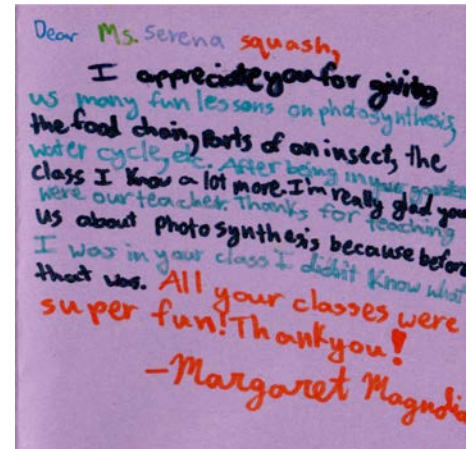 Dear Ms. Serena squash,
I appreciate you for giving
us many fun lessons on photosynthesis,
the food chain, parts of an insect, the
water cycle, etc. After being in your garden
class I know a lot more. I'm really glad you
were our teacher. Thanks for teaching
us about photosynthesis because before
I was in your class I didn't know what
that was. All your classes were
super fun! Thankyou!
-Margaret Magnolia